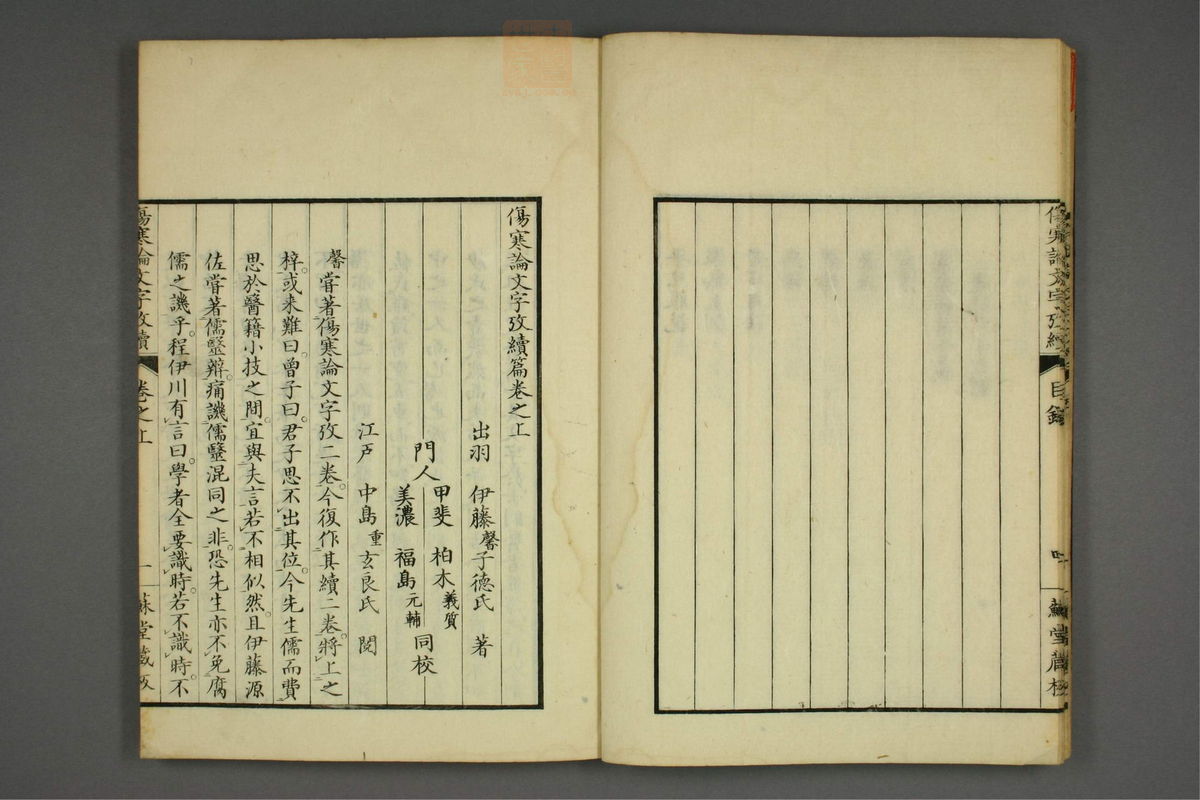 傷寒論文字攷續
目錄
蘇堂藏板
傷寒論文字攷續篇卷之上
出羽 伊藤馨子德氏 著
甲斐 柏木義質
門人 同校
美濃 福島元輔
江戸 中島重玄良氏 閱
馨甞著傷寒論文字攷二卷。今復作其續二卷將上之
梓。或来難曰。曾子曰。君子思不出其位。今先生儒而費
思於醫籍小技之間。宜與夫言若不相似然。且伊藤源
佐甞著儒毉辨。痛譏儒毉混同之非。恐先生亦不免腐
儒之譏乎。程伊川有言曰。學者全要識時。若不識時。不
傷寒論文字攷續 卷之上 一 蘇堂藏板